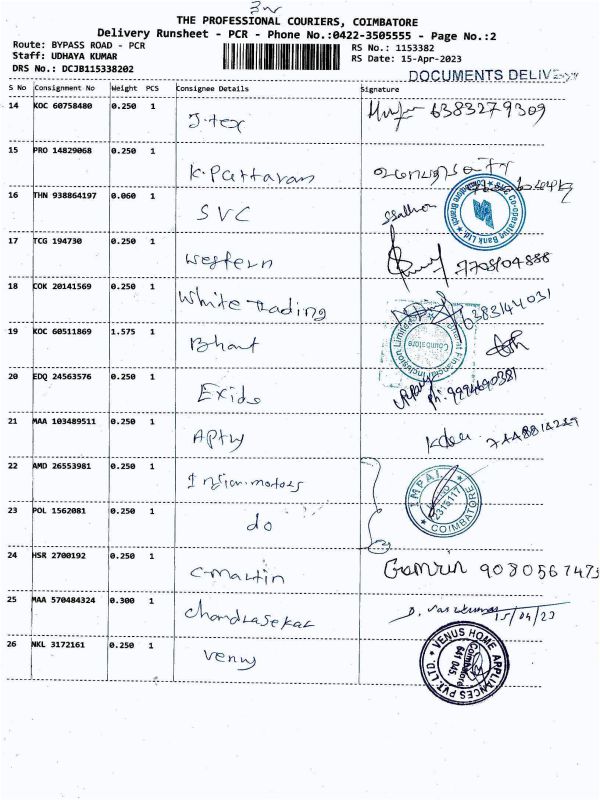 THE PROFESSIONAL COURIERS, COIMBATORE
Delivery Runsheet - PCR - Phone No.:0422-3505555 - Page No.:2
Route: BYPASS ROAD - PCR
RS No.: 1153382
Staff: UDHAYA KUMAR
RS Date: 15-Apr-2023
DRS No.: DCJB115338202
DOCUMENTS DELIVE
S No Consignment No Weight PCS Consignee Details Signature
14 KOC 60758480 0.250 1 J.tex 6383279309
15 PRO 14829068 0.250 1 K.Pattaram
16 THN 938864197 0.060 1 SVC
Co-operative Bank Ltd.
Coimbatore Branch
17 TCG 194730 0.250 1 Western 7708104888
18 COK 20141569 0.250 1 White Trading 6383144031
19 KOC 60511869 1.575 1 Bharat
Bharat Financial Inclusion Limited
Coimbatore
20 EDQ 24563576 0.250 1 Exide Ph: 9994690381
21 MAA 103489511 0.250 1
22 AMD 26553981 0.250 1 motors
IMPAL
COIMBATORE
23 POL 1562081 0.250 1 do
24 HSR 2700192 0.250 1 C-Martin 9080567475
25 MAA 570484324 0.300 1 Chandrasekar 15/04/23
26 NKL 3172161 0.250 1 Venus
VENUS HOME APPLIANCES PVT. LTD.
Coimbatore
641 045.